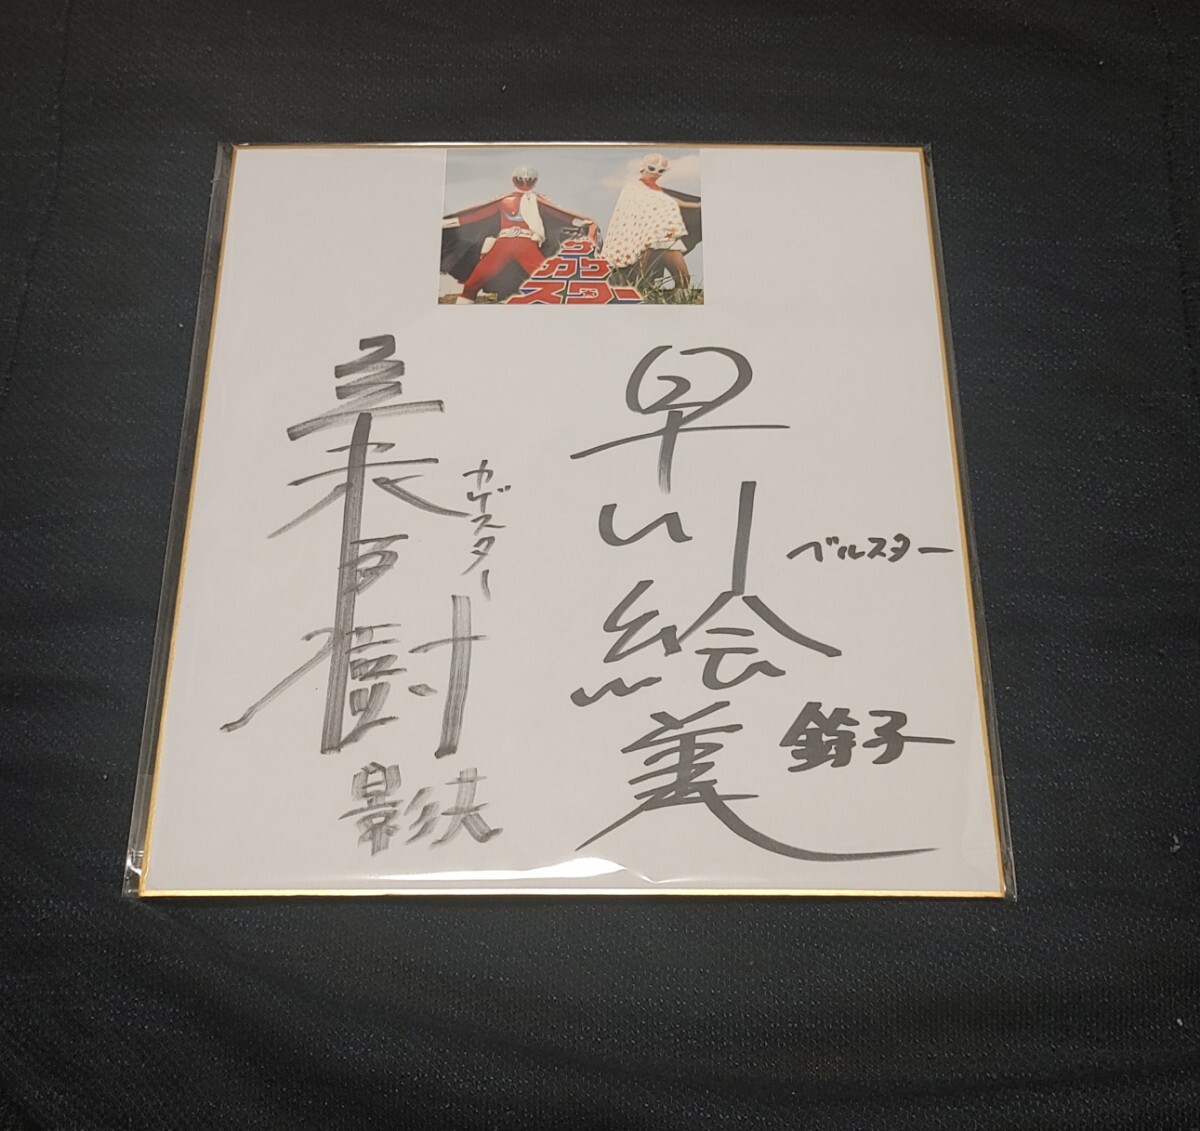 ザ
カゲ
スター
早川絵美
ベルスター
鈴子
カゲスター
影夫